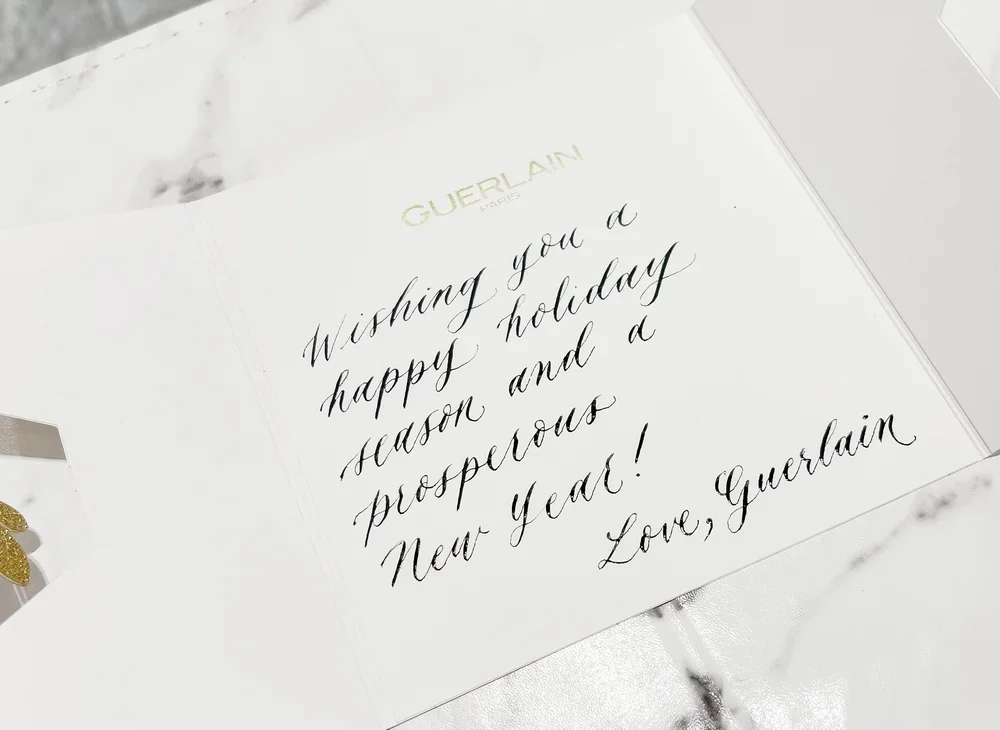 GUERLAIN
PARIS
Wishing you a
happy holiday
season and a
prosperous
New Year!
Love, Guerlain